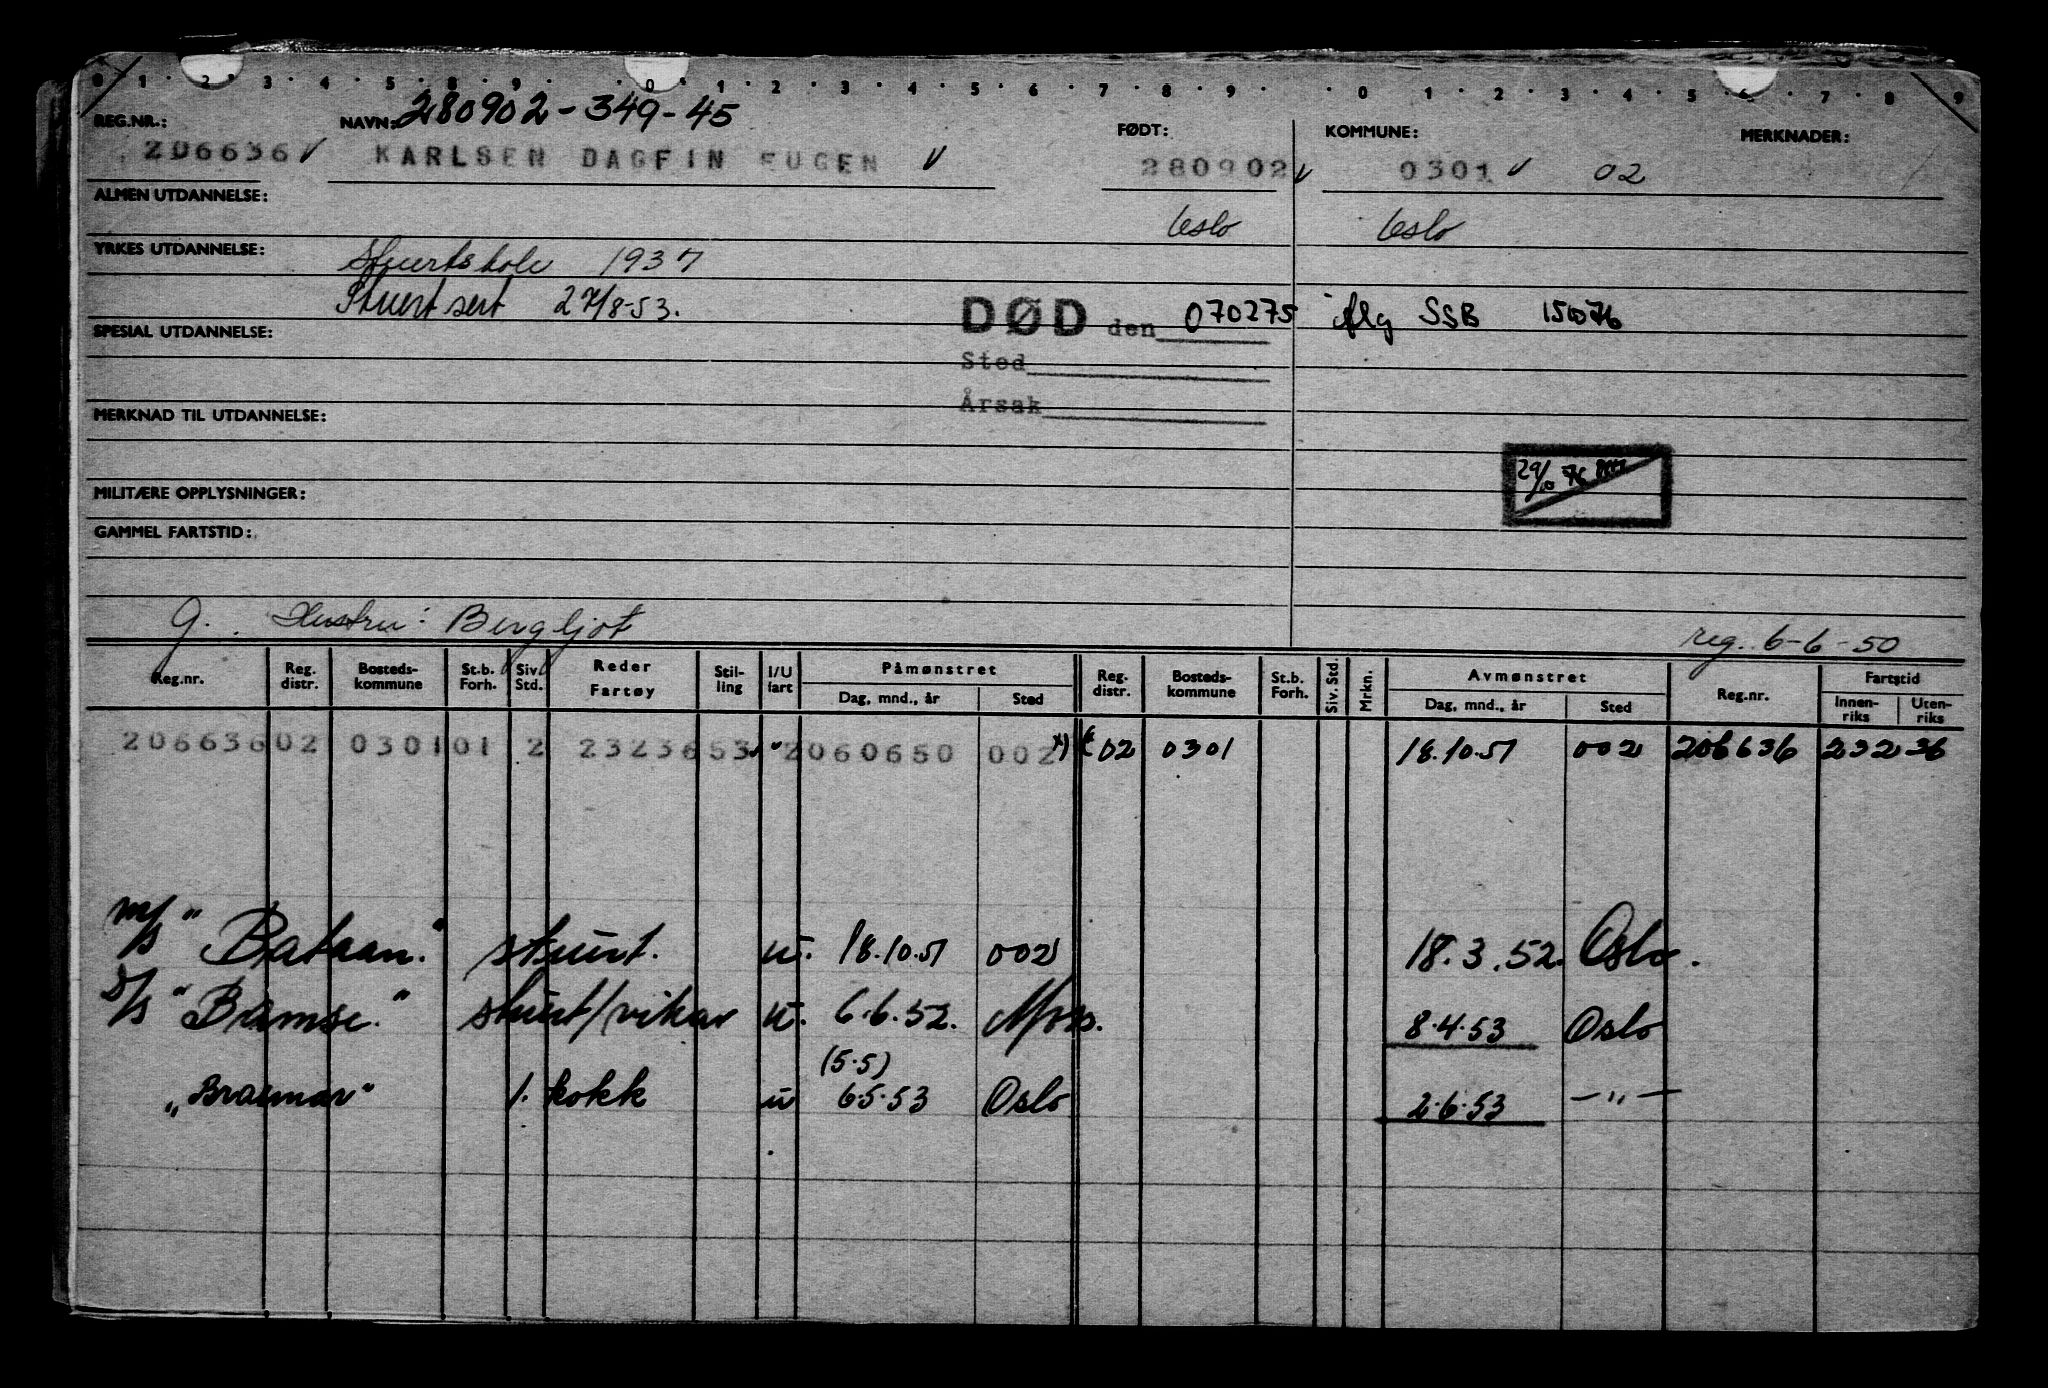 0 1 · 2 · 3 · 4 · 5 · 8 · 9 · · 0 · 1 · 2 · 3 · 4 · 5 · 6 · 7 · 8 · 9 · · 0 · 1 · 2 · 3 · 4 · 5 · 6 · 7 · 8 · 9
280902-349-45
REG.NR.: NAVN: FØDT: KOMMUNE: MERKNADER:
206636 V KARLSEN DAGFIN EUGEN V 280902 V 0301 V 02
ALMEN UTDANNELSE:
Oslo Oslo
YRKES UTDANNELSE: Stuertskole 1937
Stuert sert 27/8-53.
DØD den 070275 iflg SSB 151076
SPESIAL UTDANNELSE:
Sted
Årsak
MERKNAD TIL UTDANNELSE:
29/10 76
MILITÆRE OPPLYSNINGER:
GAMMEL FARTSTID:
g. Hustru: Bergljot
reg. 6-6-50
Reg.nr. Reg. distr. Bosteds-kommune St.b. Forh. Siv. Std. Reder Fartøy Stil-ling I/U fart Påmønstret Dag, mnd., år Sted Reg. distr. Bosteds-kommune St.b. Forh. Siv. Std. Mrkn. Avmønstret Dag, mnd., år Sted Reg.nr. Fartstid Innen-riks Uten-riks
206636 02 0301 01 2 23236 53 2 060650 002 02 0301 18.10.51 002 206636 232 36
m/s "Bataan." stuert. u. 18.10.51 002 18.3.52. Oslo.
D/S "Bamse." stuert/vikar u. 6.6.52. Moss. 8.4.53 Oslo
(5.5)
"Braemar" 1. kokk u 6.5.53 Oslo 2.6.53 —"—